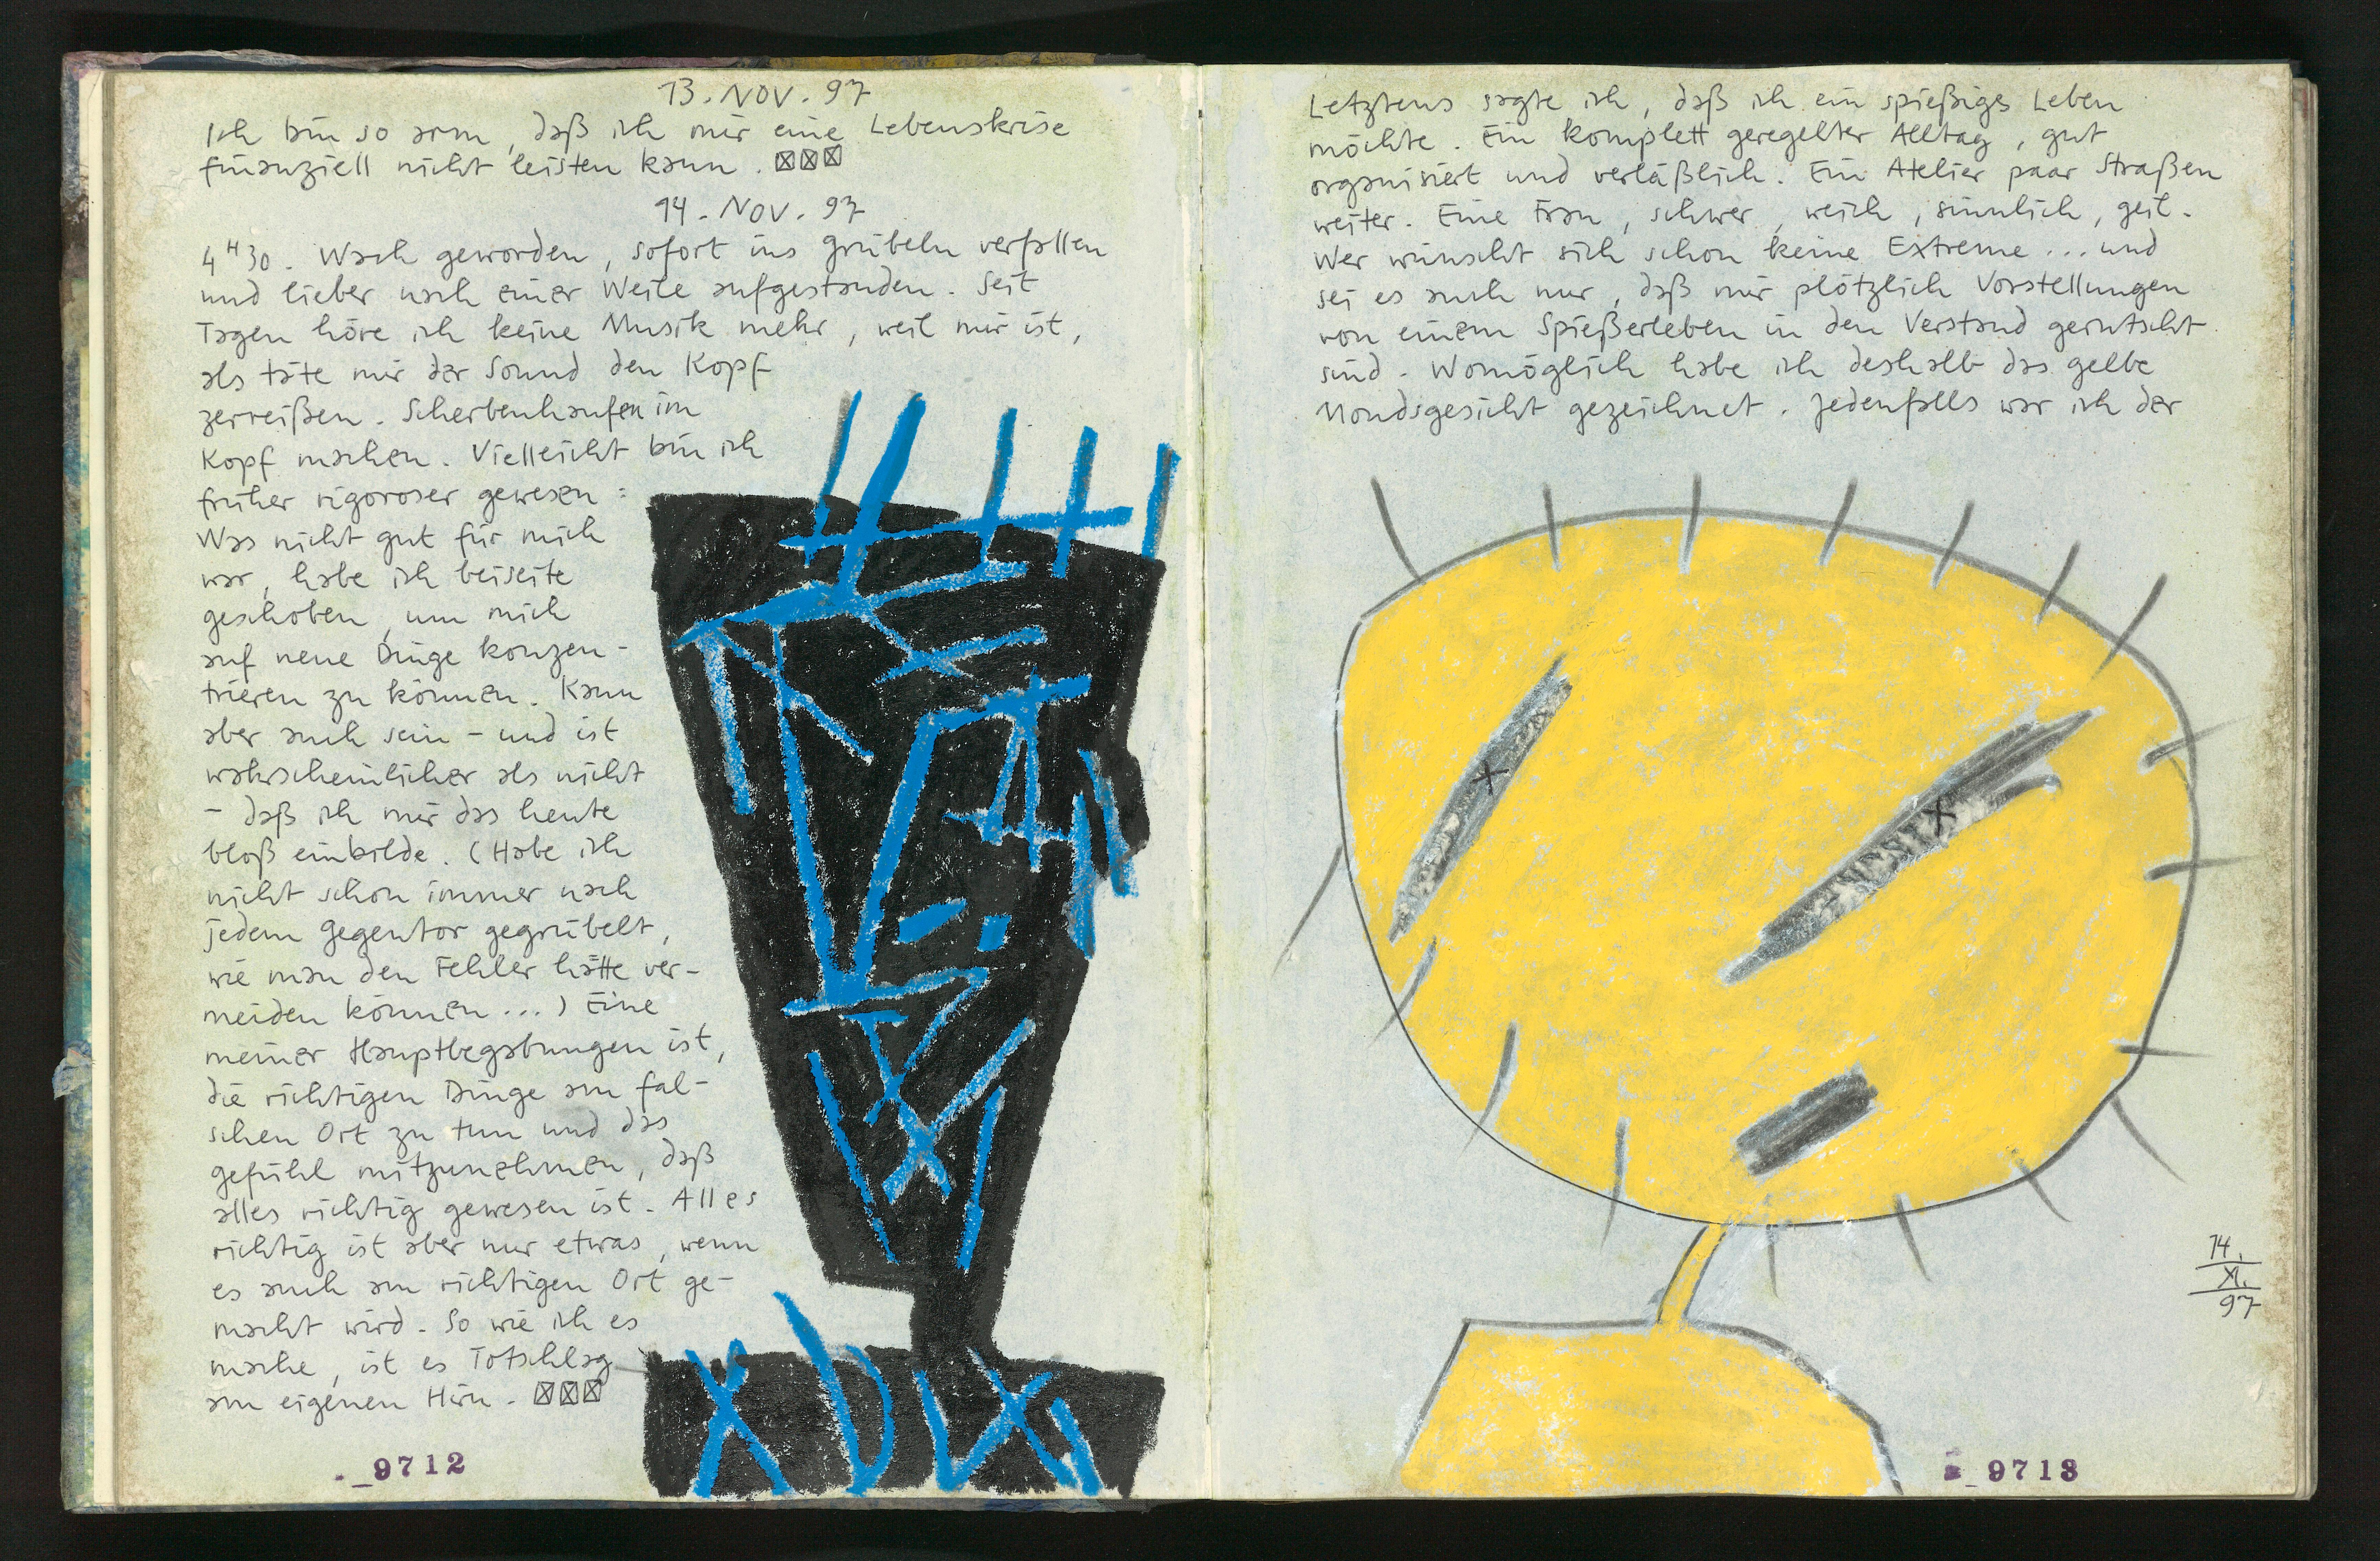 13. NOV. 97
Ich bin so arm, daß ich mir eine Lebenskrise
finanziell nicht leisten kann. ☒☒☒
14. NOV. 97
4 H 30. Wach geworden, sofort ins Grübeln verfallen
und lieber nach einer Weile aufgestanden. Seit
Tagen höre ich keine Musik mehr, weil mir ist,
als täte mir der Sound den Kopf
zerreißen. Scherbenhaufen im
Kopf machen. Vielleicht bin ich
früher rigoroser gewesen:
Was nicht gut für mich
war, habe ich beiseite
geschoben, um mich
auf neue Dinge konzen-
trieren zu können. Kann
aber auch sein – und ist
wahrscheinlicher als nicht
– daß ich mir das heute
bloß einbilde. (Habe ich
nicht schon immer nach
jedem Gegentor gegrübelt,
wie man den Fehler hätte ver-
meiden können...) Eine
meiner Hauptbegabungen ist,
die richtigen Dinge am fal-
schen Ort zu tun und das
Gefühl mitzunehmen, daß
alles richtig gewesen ist. Alles
richtig ist aber nur etwas, wenn
es auch am richtigen Ort ge-
macht wird. So wie ich es
mache, ist es Totschlag
am eigenen Hirn. ☒☒☒
_9712
Letztens sagte ich, daß ich ein spießiges Leben
möchte. Ein komplett geregelter Alltag, gut
organisiert und verläßlich. Ein Atelier paar Straßen
weiter. Eine Frau, schwer, weich, sinnlich, geil.
Wer wünscht sich schon keine Extreme... und
sei es auch nur, daß mir plötzlich Vorstellungen
von einem Spießerleben in den Verstand gerutscht
sind. Womöglich habe ich deshalb das gelbe
Mondsgesicht gezeichnet. Jedenfalls war ich der
14.
XI.
97
_9713